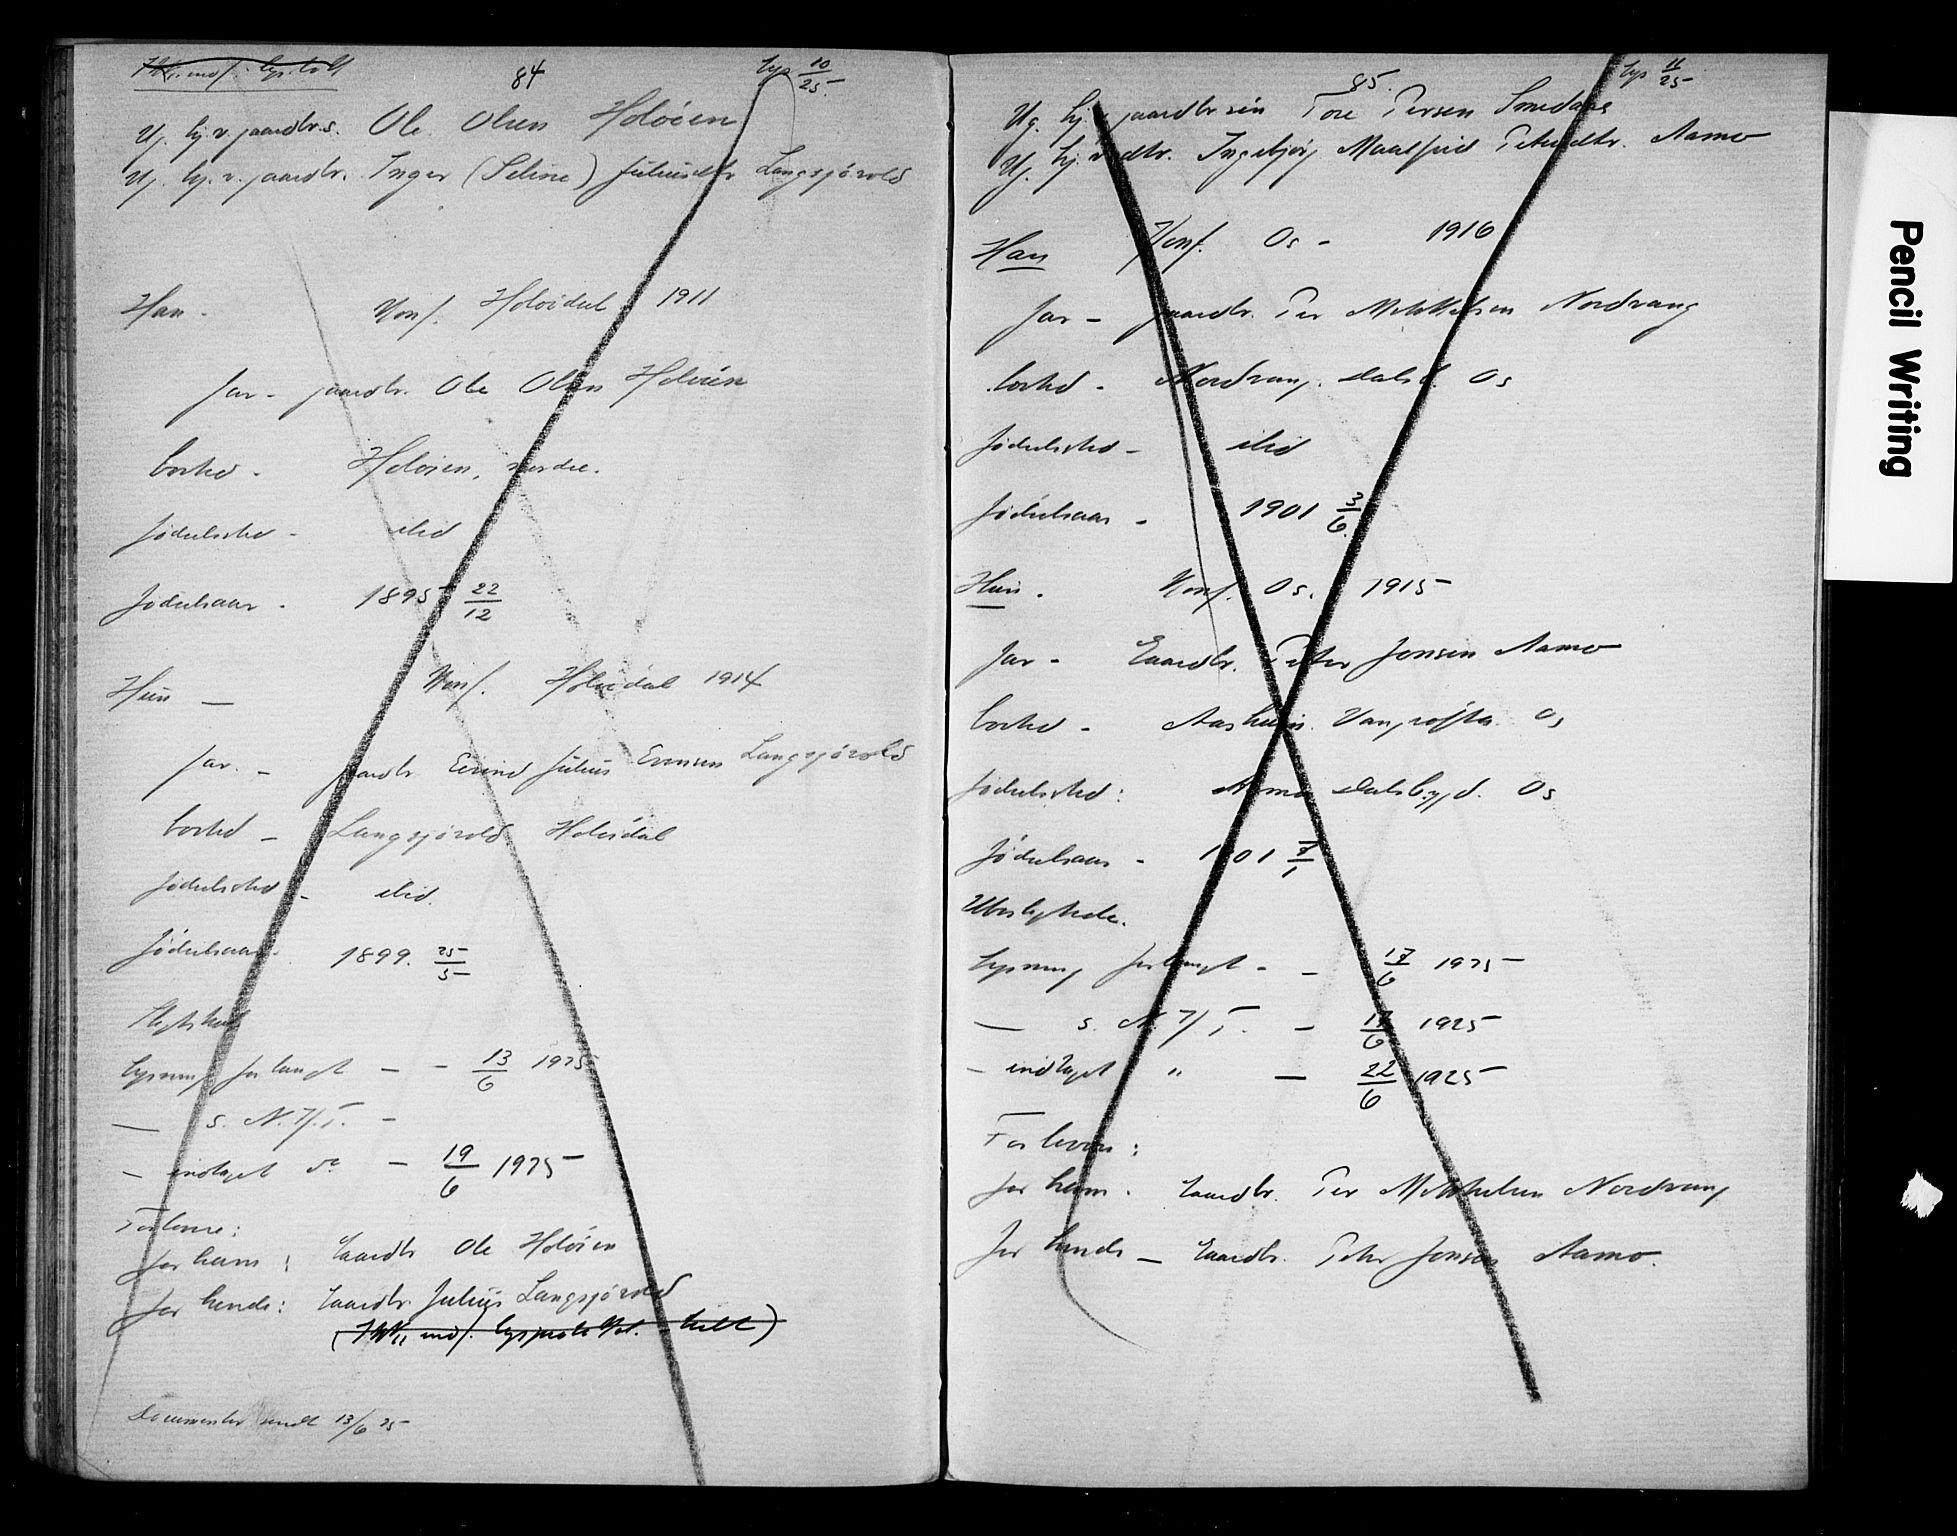 84
Lys 10/25
Ug. hj.v. gaardbr.s. Ole Olsen Holøien
Ug. hj. v. gaardbr. Inger (Seline) Juliusdtr Langsjøvold
Han - Konf. Holøidal 1911
far - gaardbr. Ole Olsen Holøien
bosted - Holøien, nordre.
fødselssted - ibid
fødselsaar - 1895 22/12
Hun — Konf. Holøidal 1914
far. - gaardbr. Eivind Julius Evensen Langsjøvold
bosted - Langsjøvold Holøidal
fødselssted - ibid.
fødselsaar - 1899. 25/5
Lysning forlangt - - 13/6 1925
— s. N.T/T. -
- indtaget do - 19/6 1925
Forlovere:
for ham: Gaardbr Ole Holøien
for hende: Gaardbr. Julius Langsjøvold
Documenter sendt 13/6 25
85.
Lys 11/25
Ug. hj. v. gaardbr søn Tore Persen
Ug. hj. v. dtr. Ingebjørg Maalfrid Petersdtr. Aamo
Han Konf. Os - 1916
far - gaardbr. Per Mikkelsen Nordvang
bosted - Nordvang. Dalsb. Os
fødselssted - ibid
fødselsaar - 1901 3/6
Hun. Konf. Os. 1915
far - Gaardbr. Peter Jonsen Aamo
bosted - Aasheim. Vangrøfta. Os
fødselssted: Aamo Dalsbygd. Os
fødselsaar - 1901 7/1
Ubeslægtede.
Lysning forlangt - - 17/6 1925
— s. N.T/T. - 17/6 1925
- indtaget " — 22/6 1925
Forlovere:
for ham. Gaardbr. Per Mikkelsen Nordvang
for hende - Gaardbr. Peter Jonsen Aamo.
Pencil Writing